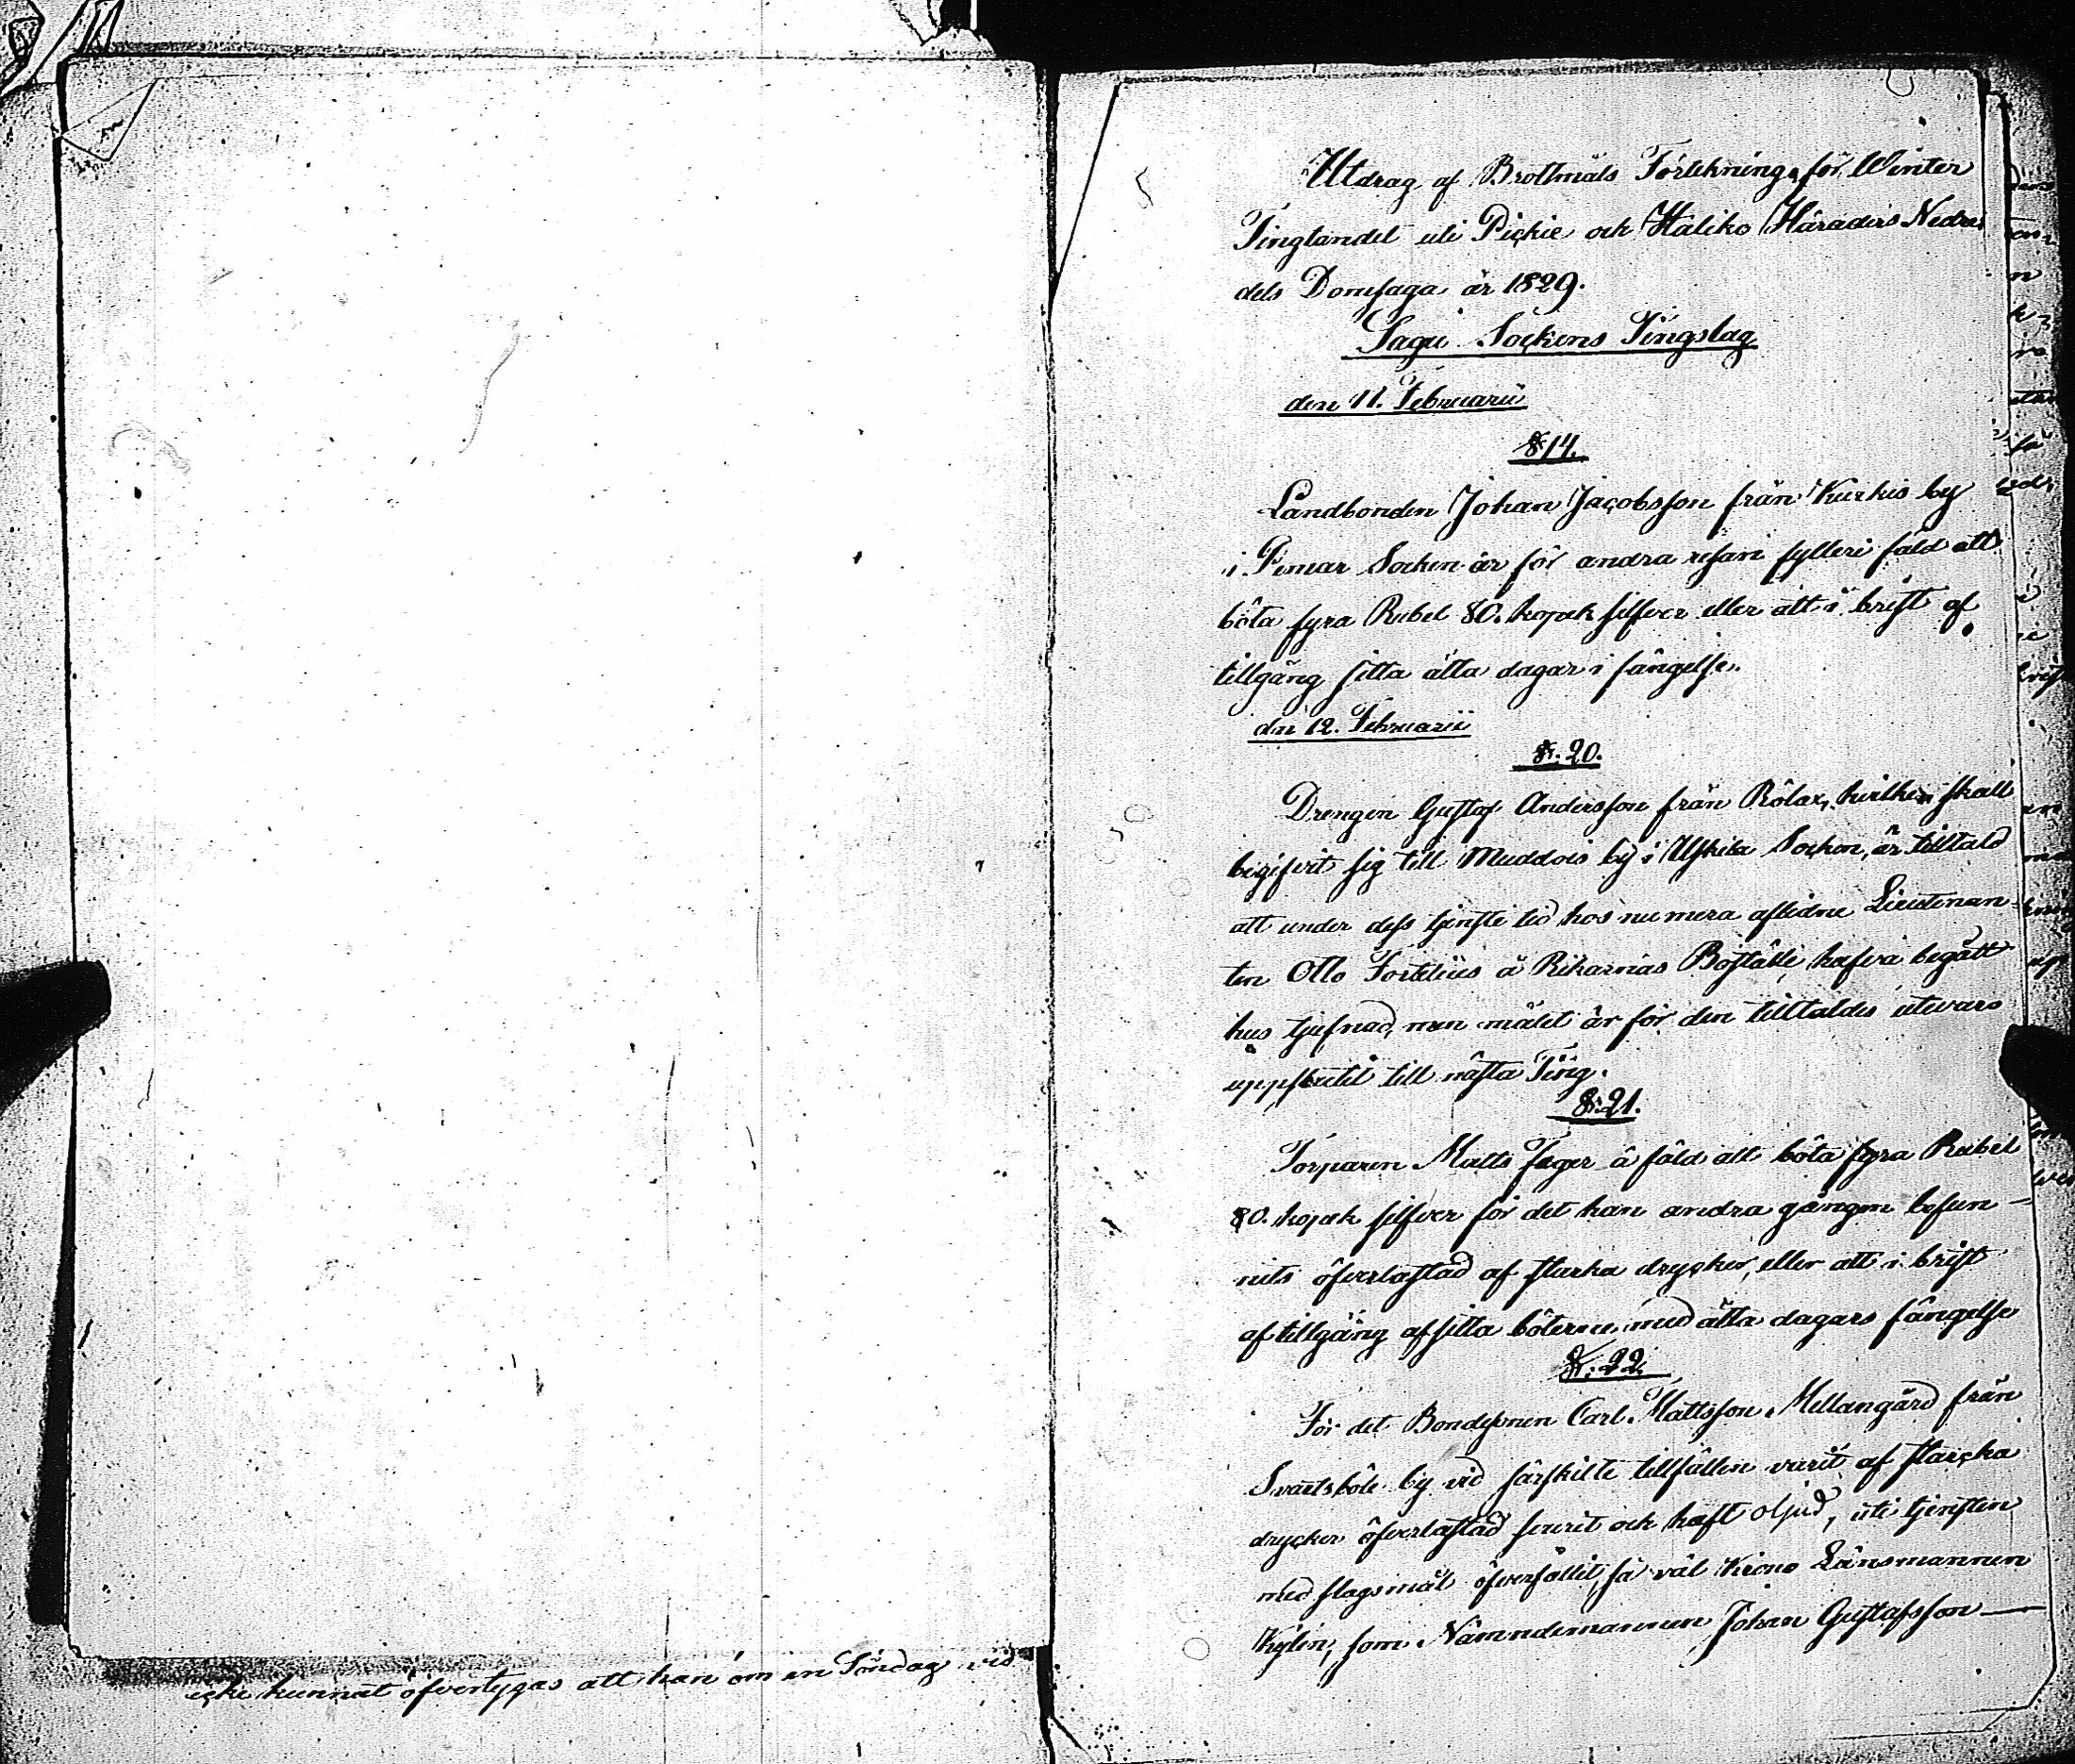 ecke kunnat öfvertygas att han om en Söndag vid
Utdrag af Brottmåls Förtekning för Winter
Tingtandet uti Pickie och Haliko Häraders Nedre
dels Domsaga år 1829.
Sagu Sockens Tingslag
den 11. Februarii
§ 14.
Landbonden Johan Jacobsson från Kurkis by
i Pemar Socken är för andra resan fylleri fäld att
böta fyra Rubel 80. kopek silfver eller att i brist af
tillgång sitta åtta dagar i fängelse.
den 12. Februarii
§. 20.
Drengen Gustaf Andersson från Rölax, hvilken skall
begifvit sig till Muddois by i Uskila Socken, är tilltald
att under dess tjenste tid hos numera aflidne Lieutenan-
ten Otto Fortelius å Rikarnäs Boställe hafva begått
hus tjufnad, men målet är för den tilltaldes utevaro
uppskutit till nästa Ting.
§. 21.
Torparen Matts Fager ä fäld att böta fyra Rubel
80. kopek silfver för det han andra gången befun-
nits öfverlastad af starka drycker, eller att i brist
af tillgång afsitta böterne med åtta dagars fängelse
§. 22.
För det Bondesonen Carl Mattsson Mellangård från
Svartsböle by vid särskilte tillfällen varit af starcka
drycker öfverlastad svurit och haft oljud, uti tjensten
med slagsmål öfverfallit så väl Krono Länsmannen
Kylin, som Nämndemannen Johan Gustafsson —